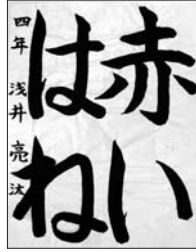 赤い
はね
四年 浅井 亮汰